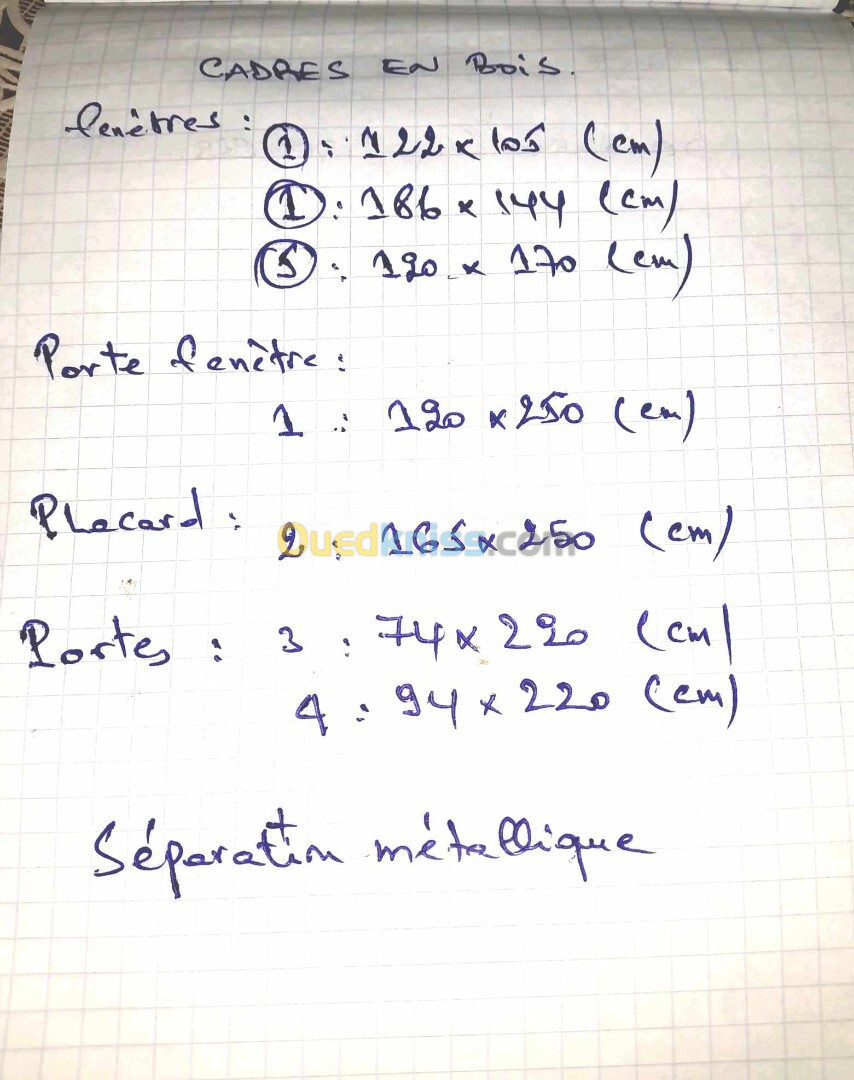 CADRES EN BOIS.
fenêtres :
1 : 122 x 105 (cm)
1 : 186 x 144 (cm)
5 : 120 x 170 (cm)
Porte fenêtre :
1 : 120 x 250 (cm)
Placard :
2 : 165 x 250 (cm)
Ouedkniss.com
Portes : 3 : 74 x 220 (cm)
4 : 94 x 220 (cm)
+
Séparation métallique